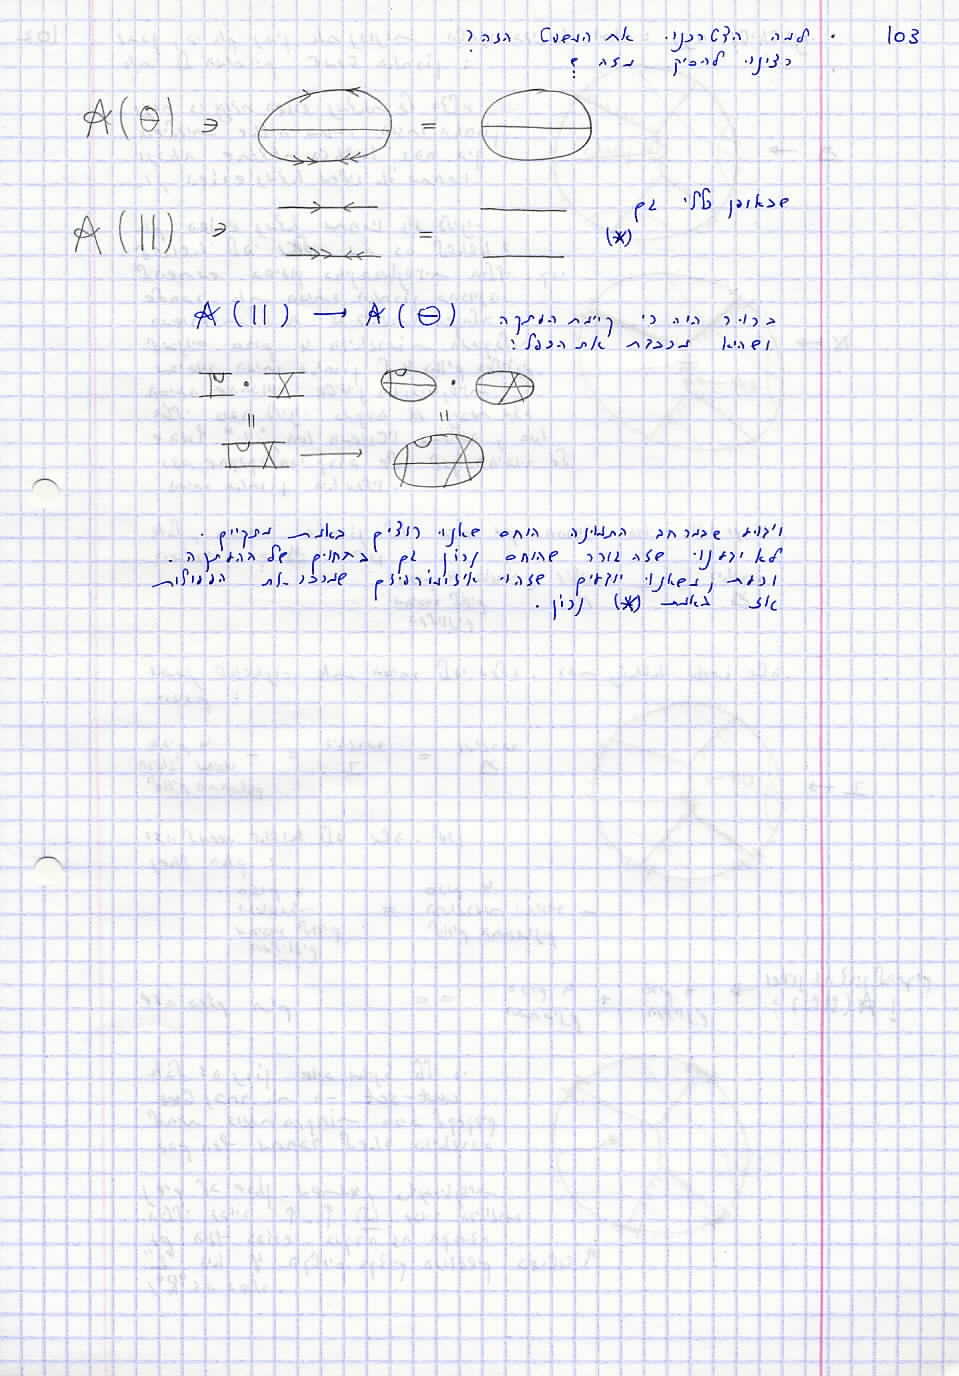 103 . למה הצטרכנו את המשפט הזה?
רצינו להסיק מזה ש
A(θ) ∋ =
שבאופן כללי גם
A(||) ∋ = (*)
A(||) → A(θ) ברור היה כי קיימת העתקה
ושהיא מכבדת את הכפל:
· ·
= =
→
וידוע שבמרחב התמונה היחס שאנו רוצים באמת מתקיים.
לא ידענו שזה גורר שהיחס נכון גם בתחום של ההעתקה.
וכעת, משאנו יודעים שזהו איזומורפיזם שמכבד את הפעולות
אז באמת (*) נכון.